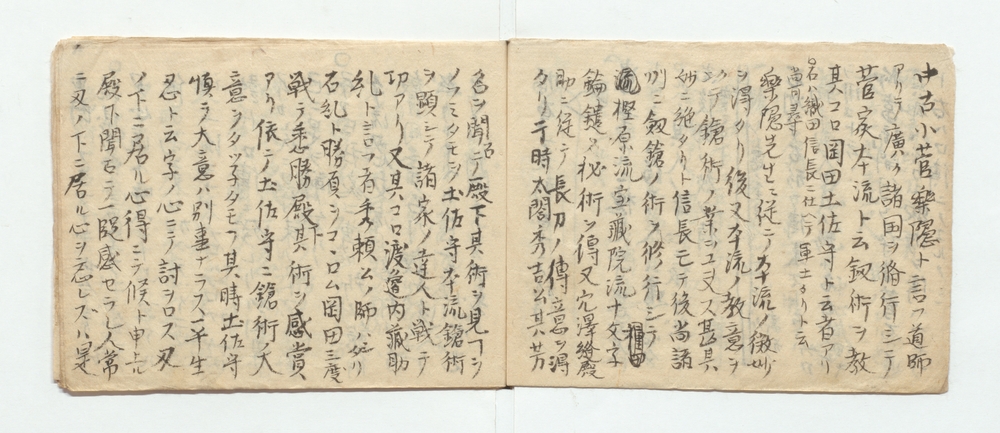 中古小菅樂隠ト言フ道師
アリテ廣ク諸国ヲ脩行シテ
菅家本流ト云釼術ヲ教
其コロ岡田土佐守ト云者アリ
呂ハ織田信長ニ仕ヘテ軍士タリト云
尚可尋
樂隠先生ニ従ニテ本流ノ微妙
ヲ得タリ後又本流ノ教意ヲ
シテ鎗術ノ業ニヲヨス甚其
妙ニ絶タリト信長モテ後尚諸
別ニ釼鎗ノ術ヲ修行シテ
流樫原流宝蔵院流十文字
鎰鑓ノ秘術ヲ傳又穴澤殿
助ニ従テ長刀ノ傳意ヲ得
タリ干時太閤秀吉公其芳
名ヲ聞召テ殿下其術ヲ見マヲシ
ノゾミタモヲ土佐守本流鎗術
ヲ顕シテ諸家ノ達人ト戦テ
功アリ又其コロ渡邉内蔵助
糺ト言フ者秀頼公ノ師ハタリ
石糺ト勝負シマロム岡田三度
戦テ悉勝殿下其術ヲ感賞
アリ依テ土佐守ニ鎗術大
意ヲタツ子タモフ其時土佐守
慎テ大意ハ別亊ナラス平生
忍ト云字ノ心ニテ討ヲロス刄
ノ下ニ居ル心得ニテ候ト申上
殿下聞召テ一段感セラレ人常
ニ刄ノ下ニ居ル心ヲ忘レズハ是